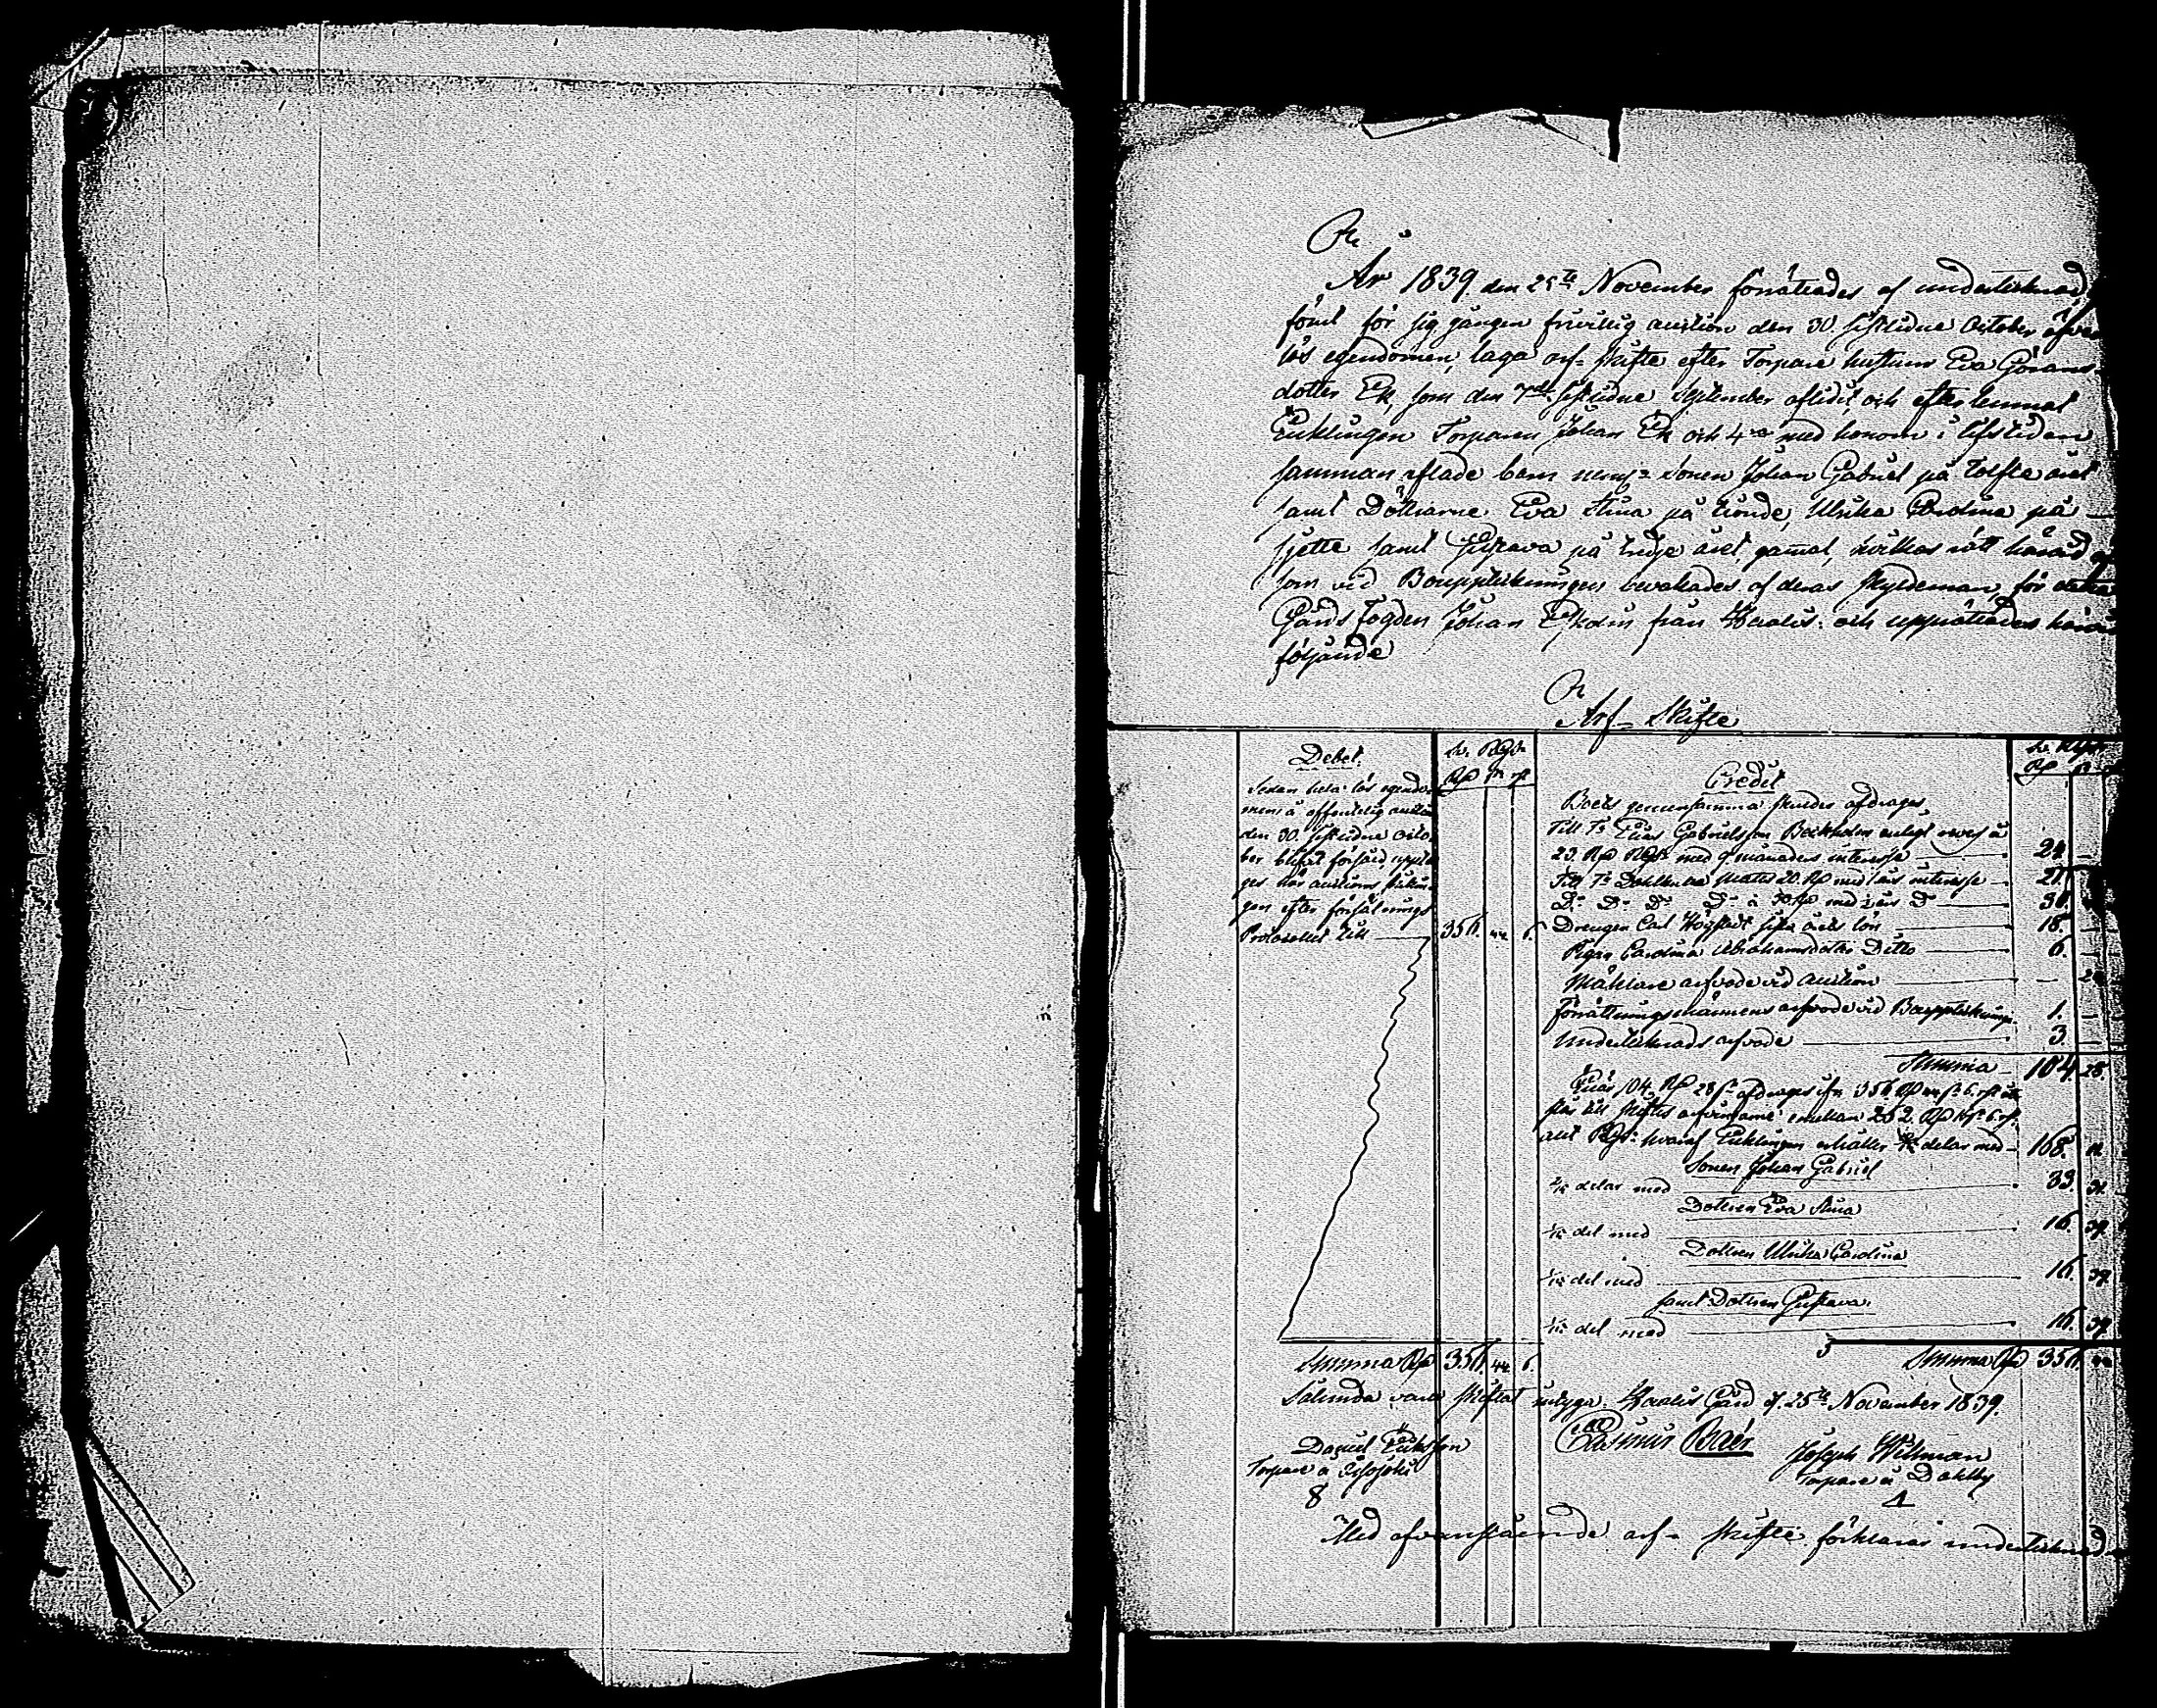 År 1839. den 25te November förrättades af undertecknad,
jemt för sig gången frivillig auction den 30. sistlidne October öfver
lös egendomen, laga arf-skifte efter Torpare hustrun Eva Görans-
dotter Ek, som den 7de sistlidne September aflidit, och efterlemnat
Enklingen Torparen Johan Ek och 4ra med honom i lifstiden
samman aflade barn neml: Sonen Johan Gabriel på tolfte året
samt Döttrarne Eva Stina på tionde, Ulrika Carolina på
sjette samt Gustava på tredje året gamal, hvilkas rätt härvid
som vid Bouppteckningen bevakades af deras Skyldeman, för detta
Gårds fogden Johan Ekholm från och upprättades härvid
följande
Arf-Skifte
Debet.
Sedan hela lös egendo-
men å offentelig auction
den 30. sistlidne Octo-
ber blifvit försåld, uppta-
ges här auctions
efter försälnings
Protocollet till 356. 44. 6.
Credit
Boets gemensamma skulder afdrages
Till Elias Gabrielsson Beckholm enligt revers å
23. Rd med 9 månaders interesse 24.
Till 20. Rd med 1 års interesse 21.
Do Do Do Do å 30 Rd med 1 års Do
Drengen Carl Högstedt sista årets lön 18.
Pigan Carolina Abrahamsdotter Ditto 6.
Mäklare arfvode vid auction
Förrättningsmännens arfvode vid Bouppteckningen 1.
Undertecknads arfvode 3.
Summa 104. 28.
Dessa 104. Rd 28 s. afdrages ifrån 356 Rd 44 s. 6. rst åter-
står till skiftes arfvingarne emellan 252. Rd 16 s. 6 rst.
allt hvaraf Enklingen erhåller delar med 168.
Sonen Johan Gabriel
delar med 33.
Dottren Eva Stina
del med 16. 39.
Dottren Ulrika Carolina
del med 16. 39.
samt Dottren Gustava.
del med 16. 39.
Summa Rd 356. 44. 6. Summa Rd 356. 44.
Sålunda vara skiftat intyga. Gård d. 25te November 1839.
Daniel Eriksson Casimir Baër Joseph Widman
Torpare å Torpare å Dahlby
Med ofvanstående arf-skifte förklaras undertecknad